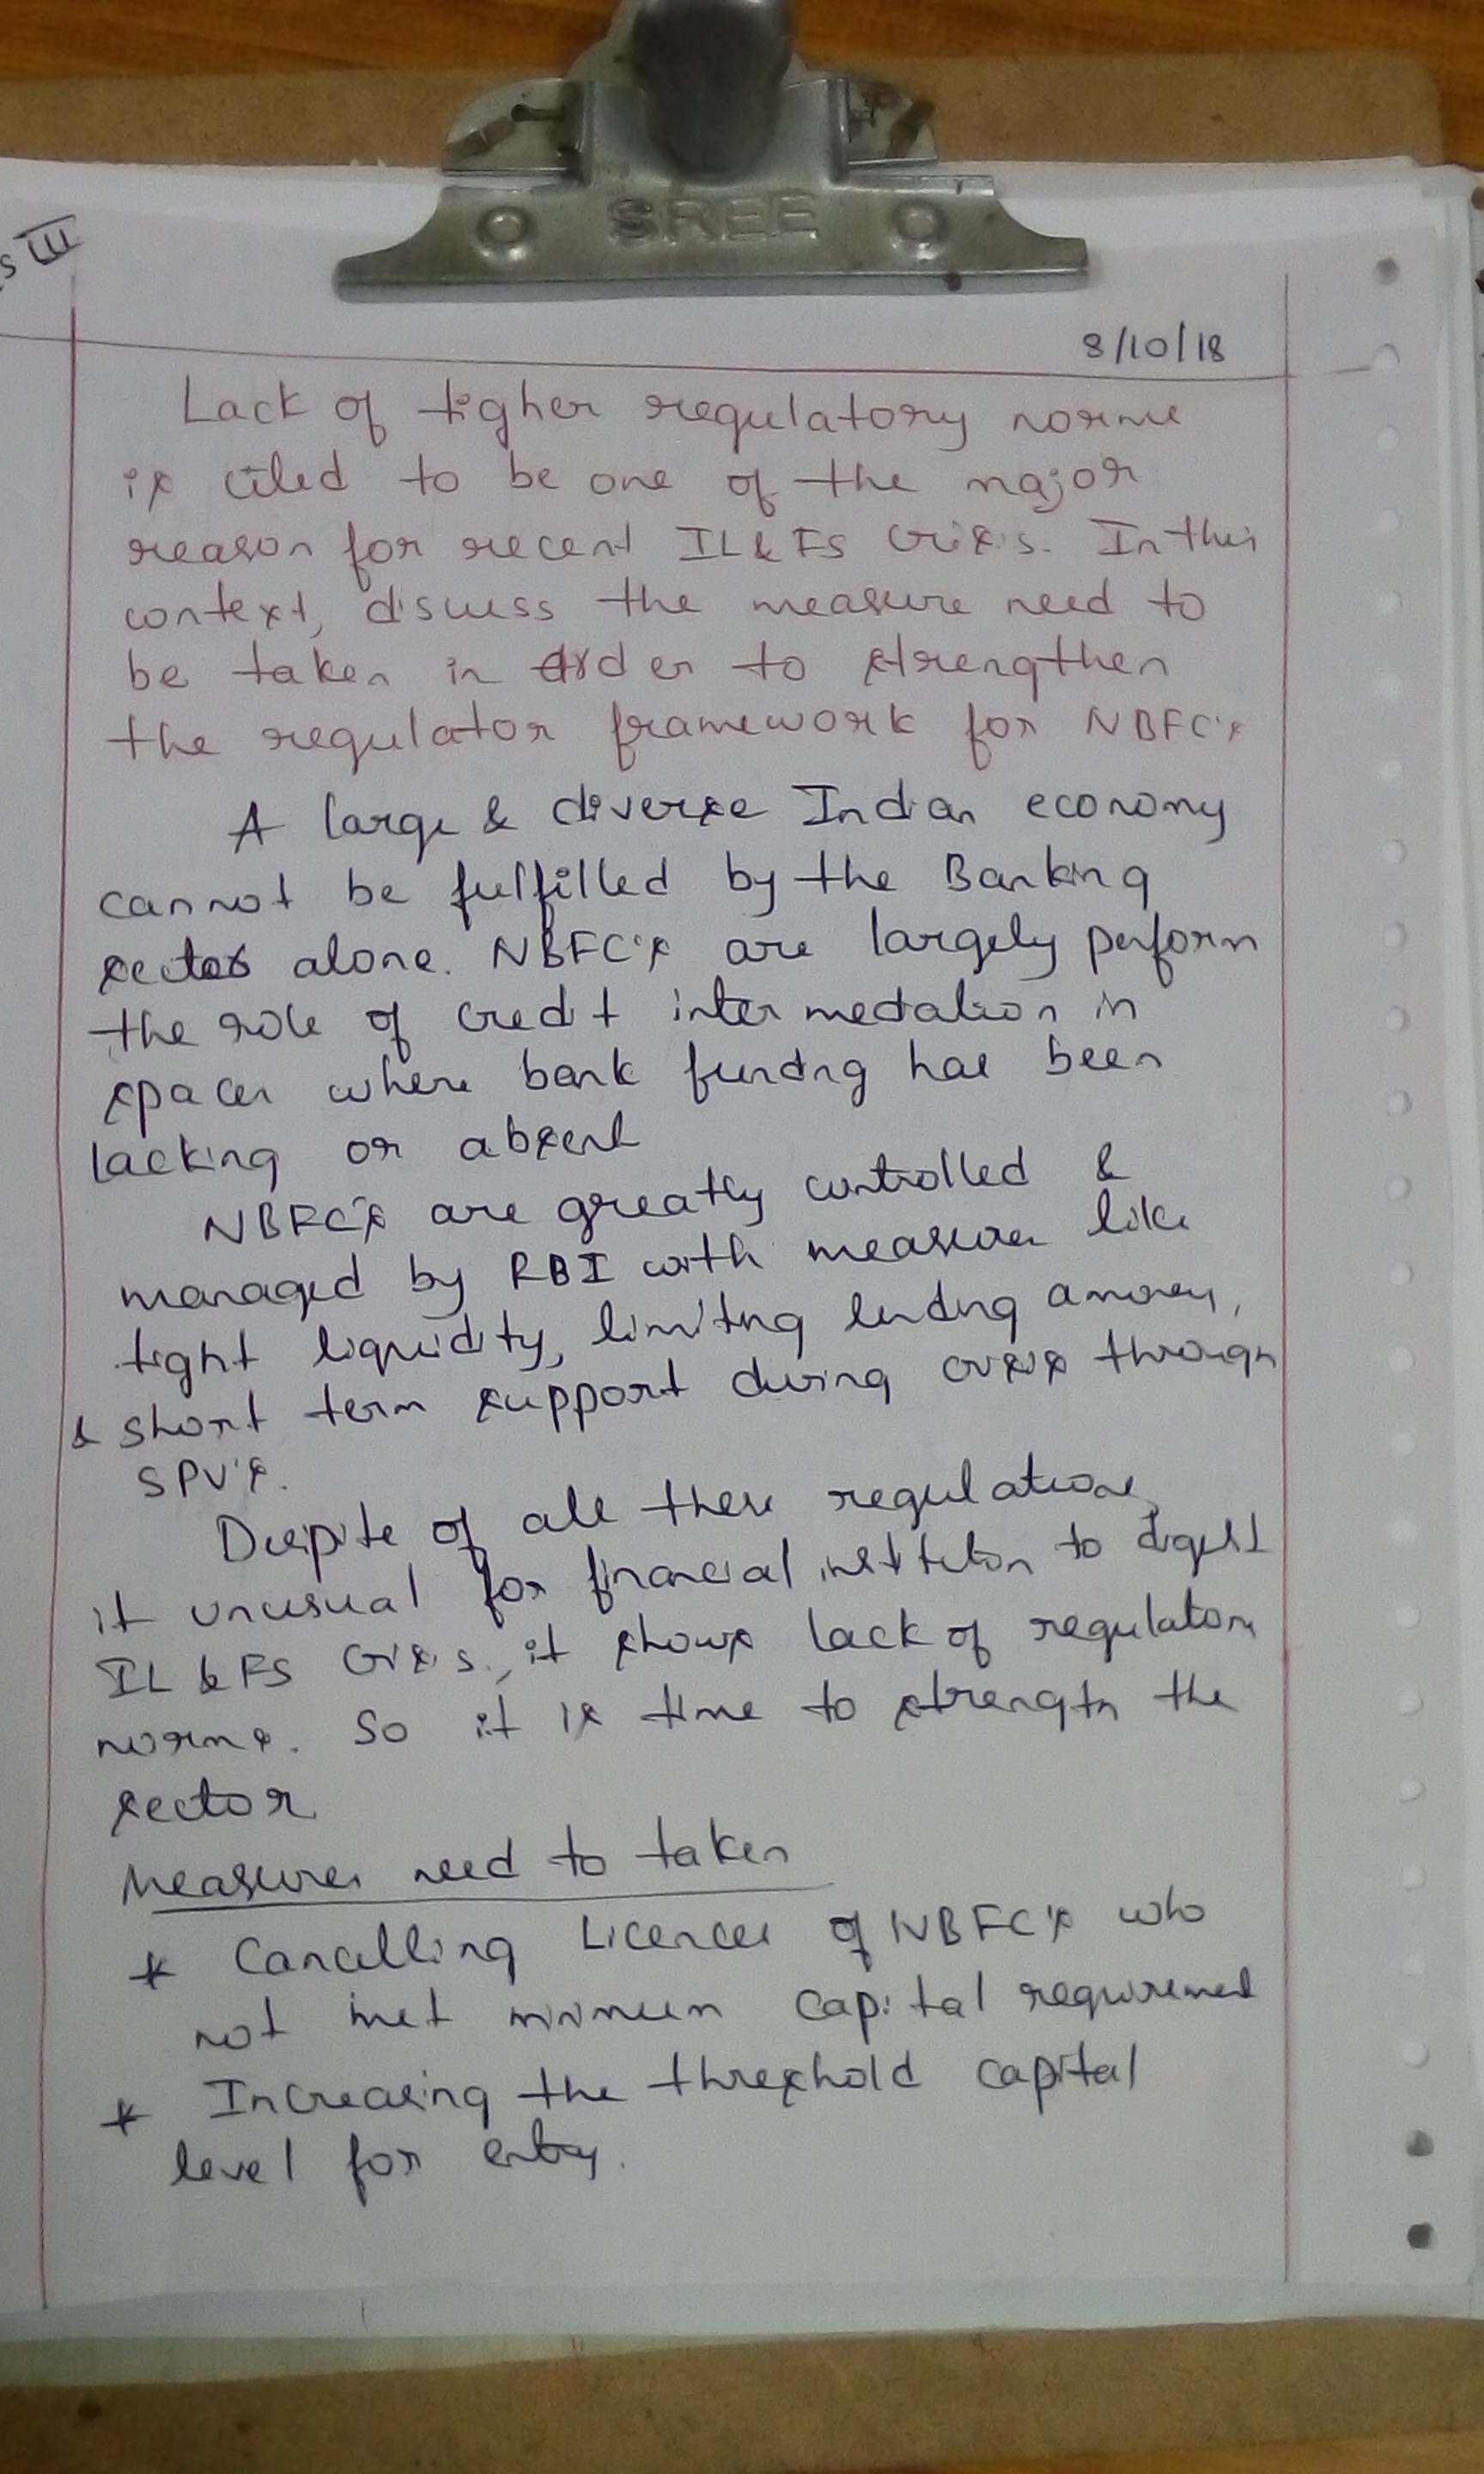 SREE
S III
8/10/18
Lack of tigher regulatory norms
is cited to be one of the major
reason for recent IL&FS Crisis. In this
context, discuss the measure need to
be taken in order to strengthen
the regulator framework for NBFC's
A large & diverse Indian economy
cannot be fulfilled by the Banking
sector alone. NBFC's are largely perform
the role of credit intermediation in
spaces where bank funding has been
lacking or absent
NBFC's are greatly controlled &
managed by RBI with measures like
tight liquidity, limiting lending among,
& short term support during crisis through
SPV's.
Despite of all these regulations,
it unusual for financial institution to digest
IL&FS Crisis, it shows lack of regulatory
norms. So it is time to strength the
sector
Measures need to taken
* Cancelling Licences of NBFC's who
not met minimum capital requirement
* Increasing the threshold capital
level for entry.